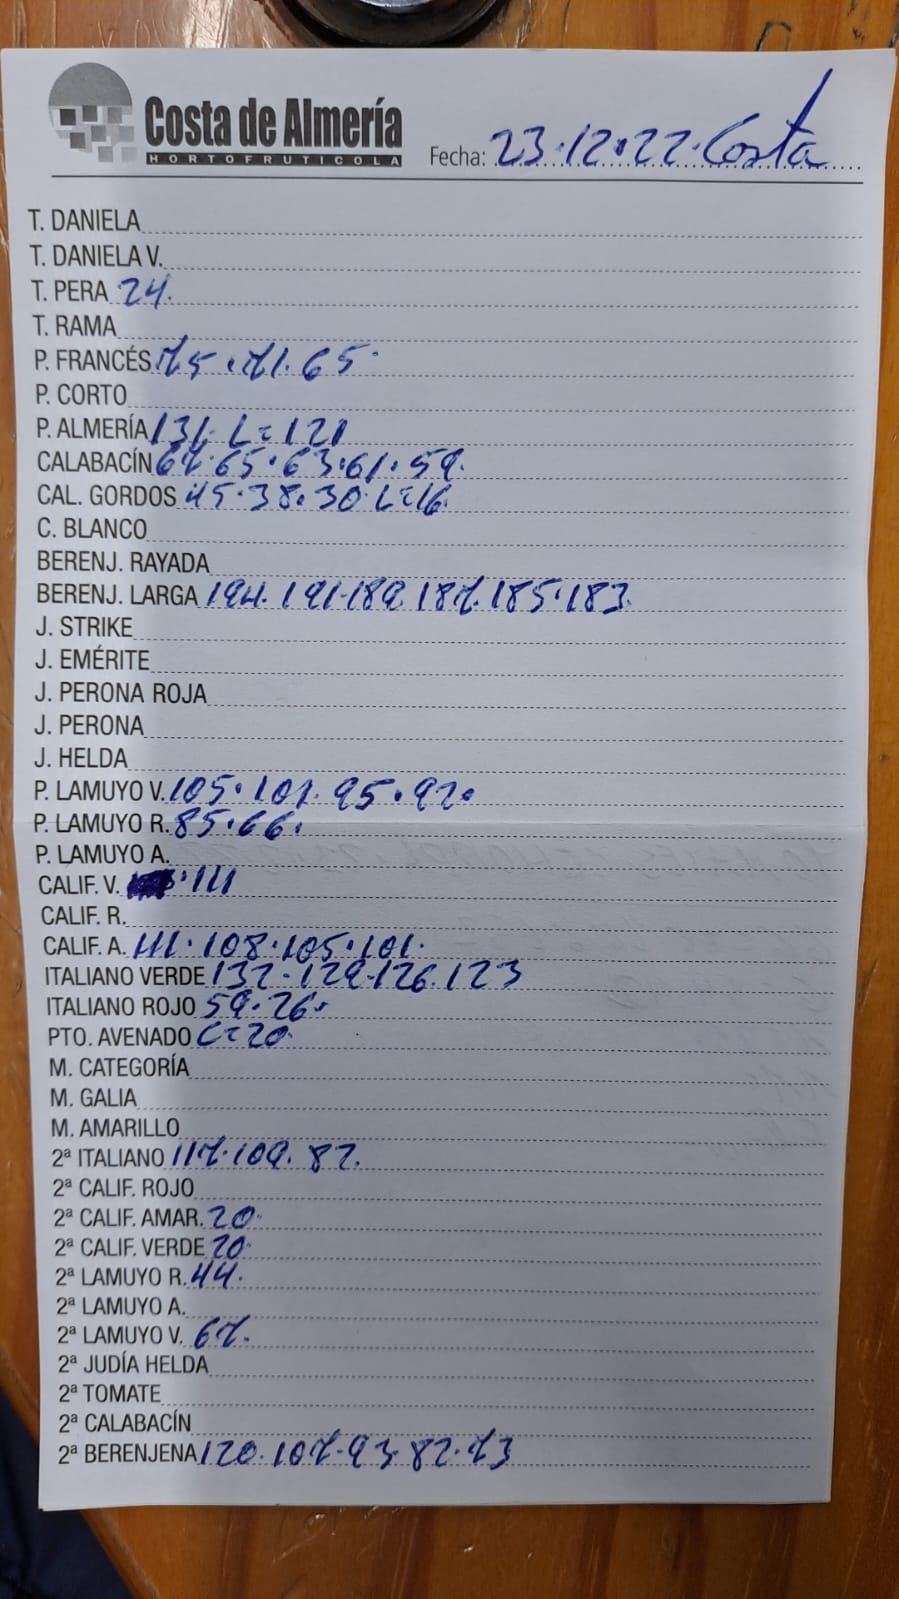 Costa de Almería
HORTOFRUTICOLA
Fecha: 23.12.22. Costa
T. DANIELA
T. DANIELA V.
T. PERA 24.
T. RAMA
P. FRANCÉS 75.71.65.
P. CORTO
P. ALMERÍA 131. L=121
CALABACÍN 67.65.63.61.59.
CAL. GORDOS 45.38.30.L=16.
C. BLANCO
BERENJ. RAYADA
BERENJ. LARGA 194.191.189.187.185.183.
J. STRIKE
J. EMÉRITE
J. PERONA ROJA
J. PERONA
J. HELDA
P. LAMUYO V. 105.101.95.92.
P. LAMUYO R. 85.66.
P. LAMUYO A.
CALIF. V. .111
CALIF. R.
CALIF. A. 111.108.105.101.
ITALIANO VERDE 132.129.126.123
ITALIANO ROJO 59.26.
PTO. AVENADO C=20.
M. CATEGORÍA
M. GALIA
M. AMARILLO
2ª ITALIANO 117.109.82.
2ª CALIF. ROJO
2ª CALIF. AMAR. 20.
2ª CALIF. VERDE 20.
2ª LAMUYO R. 44.
2ª LAMUYO A.
2ª LAMUYO V. 67.
2ª JUDÍA HELDA
2ª TOMATE
2ª CALABACÍN
2ª BERENJENA 120.107.93.82.73